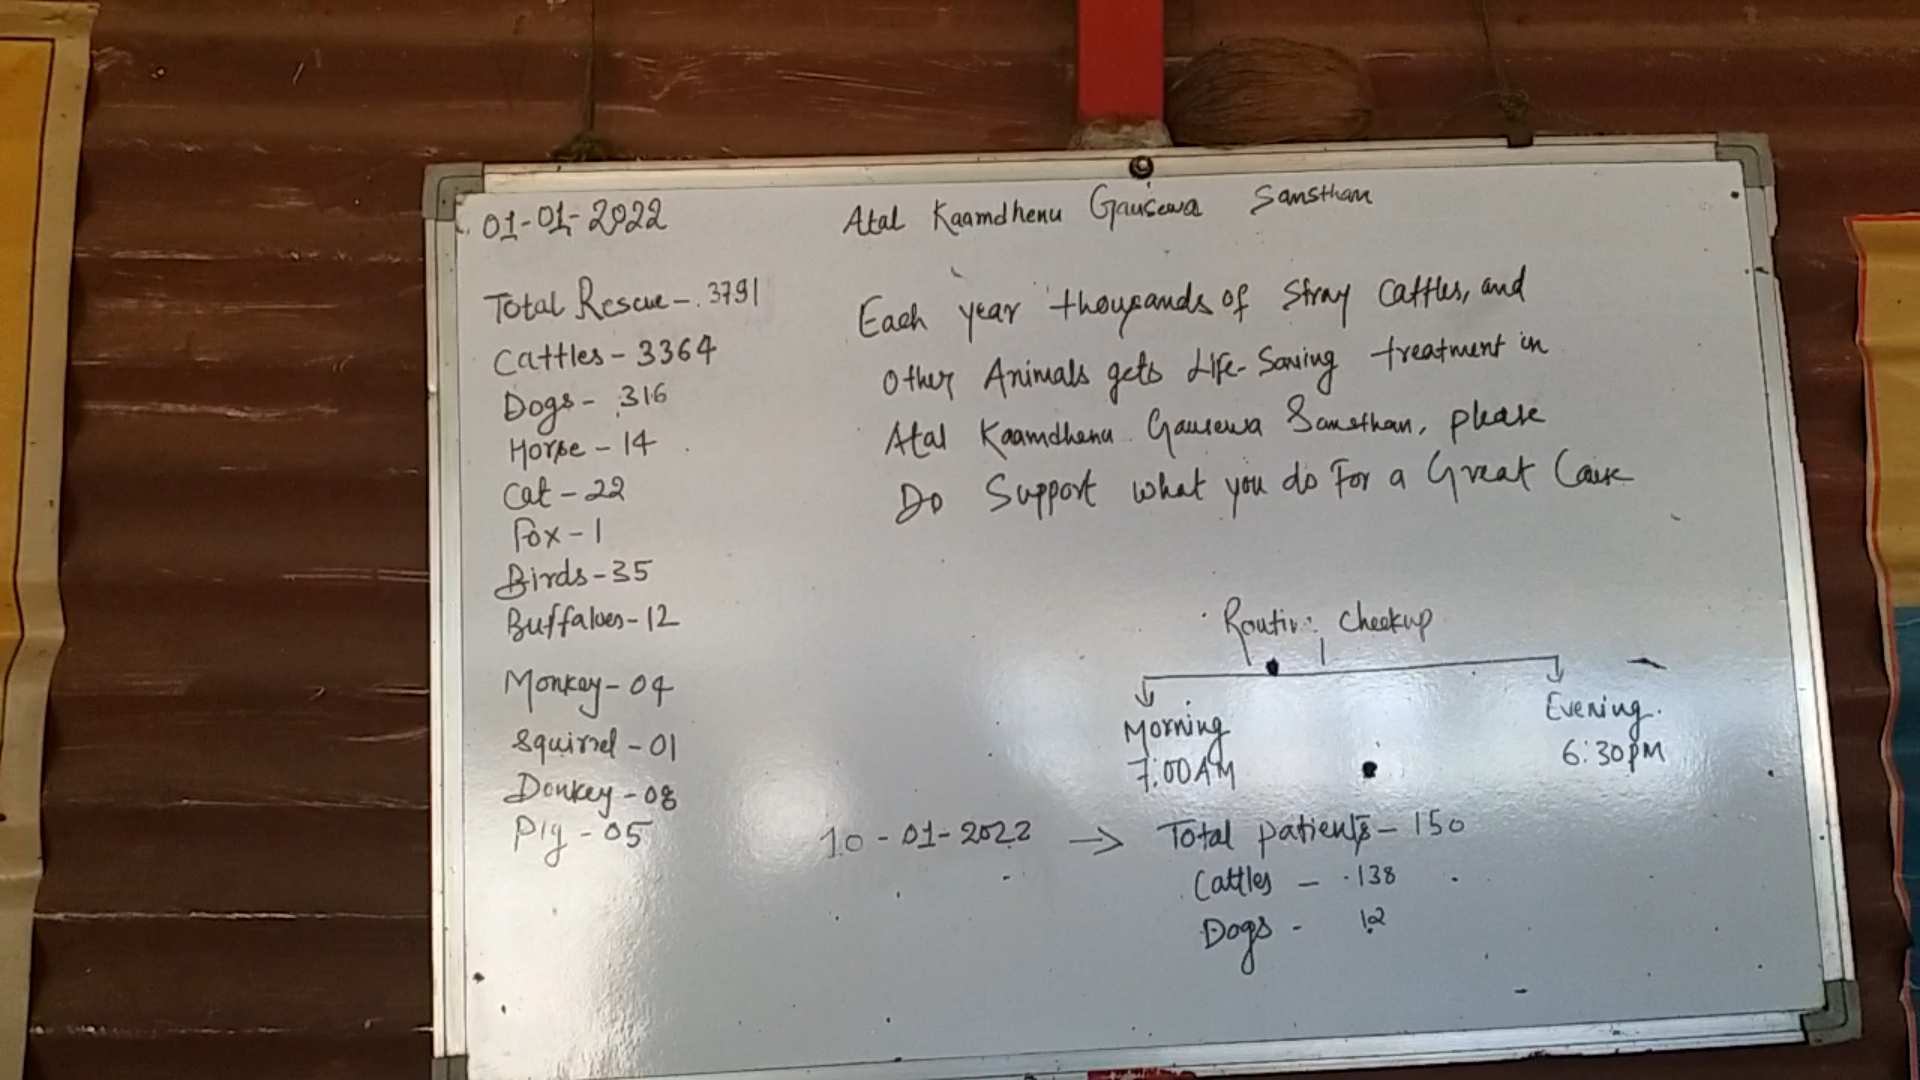 01-01-2022
Atal Kaamdhenu Gausewa Sansthan
Total Rescue - 3791
Cattles - 3364
Dogs - 316
Horse - 14
Cat - 22
Fox - 1
Birds - 35
Buffaloes - 12
Monkey - 04
Squirrel - 01
Donkey - 08
Pig - 05
Each year thousands of Stray Cattles, and
Other Animals gets Life-Saving treatment in
Atal Kaamdhenu Gausewa Sansthan, please
Do Support what you do For a Great Cause
Routin Checkup
Morning
7:00AM
Evening
6:30PM
10-01-2022 → Total patients - 150
Cattles - 138
Dogs - 12